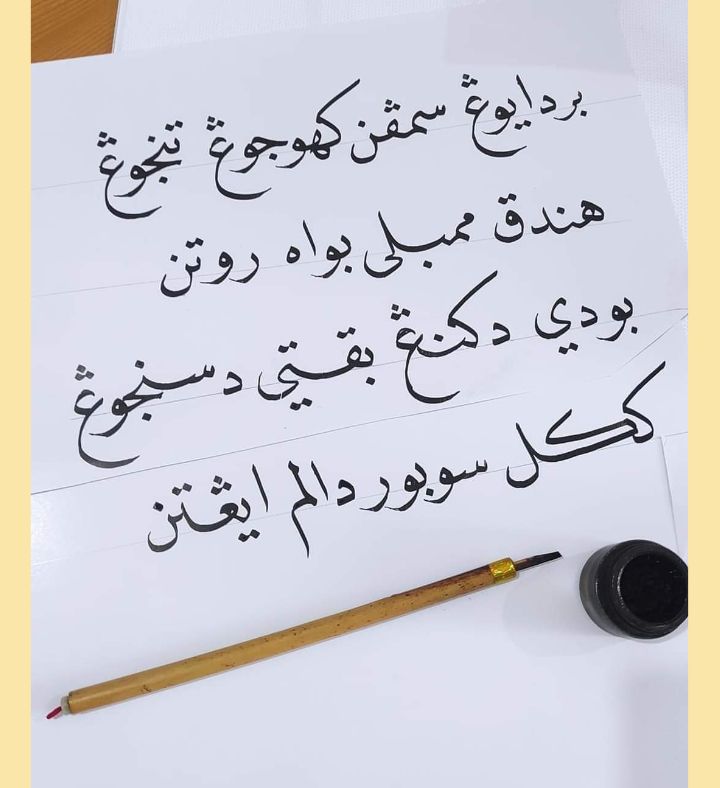 بردايوڠ سمڤن کهوجوڠ تنجوڠ
هندق ممبلي بواه روتن
بودي دکنڠ بقتي دسنجوڠ
ککل سوبور دالم ايڠتن